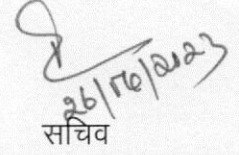 26/06/2023
सचिव